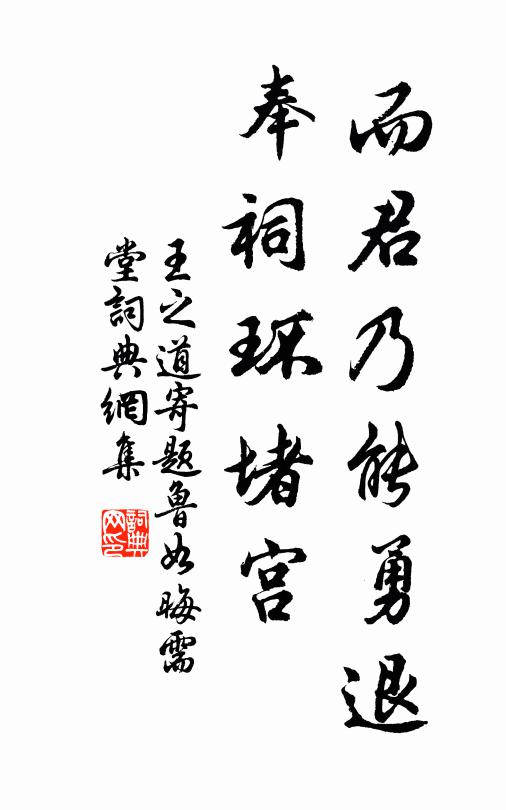 而君乃能勇退
奉祠环堵宫
王之道寄题鲁如晦需
堂詞典網集
詞典
网印